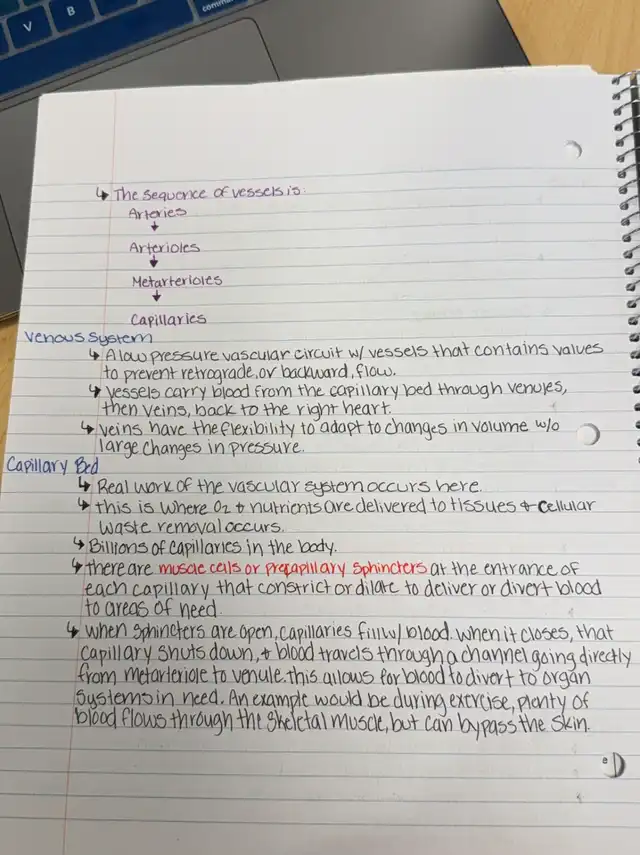 V
B
↳ The sequence of vessels is:
Arteries
↓
Arterioles
↓
Metarterioles
↓
Capillaries
Venous System
↳ A low pressure vascular circuit w/ vessels that contains values
to prevent retrograde, or backward, flow.
↳ vessels carry blood from the capillary bed through venules,
then veins, back to the right heart.
↳ veins have the flexibility to adapt to changes in volume w/o
large changes in pressure.
Capillary Bed
↳ Real work of the vascular system occurs here.
↳ this is where O2 + nutrients are delivered to tissues + cellular
waste removal occurs.
↳ Billions of capillaries in the body.
↳ there are muscle cells or precapillary sphincters at the entrance of
each capillary that constrict or dilate to deliver or divert blood
to areas of need.
↳ when sphincters are open, capillaries fill w/ blood. when it closes, that
capillary shuts down, + blood travels through a channel going directly
from metarteriole to venule. this allows for blood to divert to organ
systems in need. An example would be during exercise, plenty of
blood flows through the skeletal muscle, but can bypass the skin.